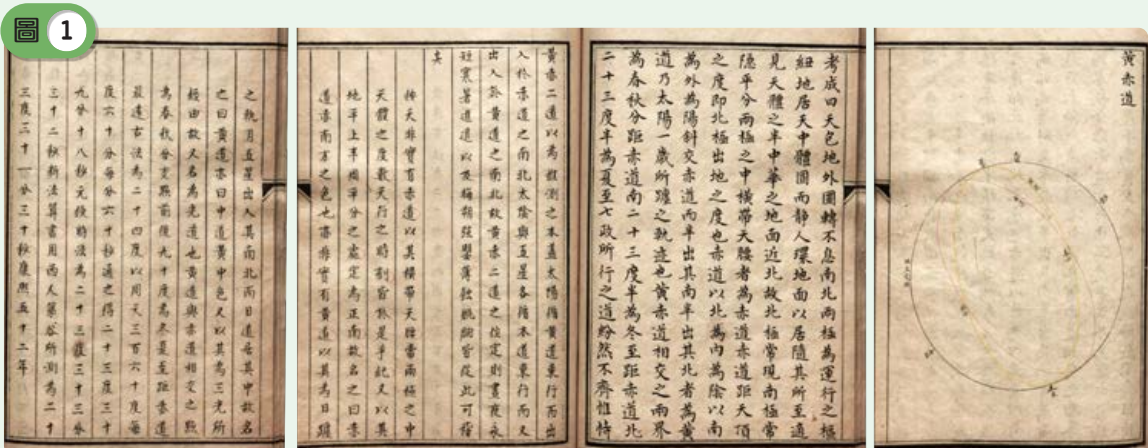 圖 1
黃赤道
考成曰天包地外圜轉不息南北兩極為運行之樞
紐地居天中體圜而靜人環地面以居隨其所至適
見天體之半中華之地面近北故北極常現南極常
隱平分兩極之中橫帶天腰者為赤道赤道距天頂
之度即北極出地之度也赤道以北為內為陰以南
為外為陽斜交赤道而半出其南半出其北者為黃
道乃太陽一歲所躔之軌迹也黃赤道相交之兩界
為春秋分距赤道南二十三度半為冬至距赤道北
二十三度半為夏至七政所行之道紛然不齊惟恃
黃赤二道以為推測之本蓋太陽循黃道東行而出
入於赤道之南北太陰與五星各循本道東行而又
出入於黃道之南北故黃赤二道之位定則晝夜永
短寒暑進退以及晦朔弦望薄蝕朓朒皆從此可稽
矣
按天非實有赤道以其橫帶天腰當兩極之中
天體之度數天行之時刻皆於是乎紀又以其
地平上半周平分之處定為正南故名之曰赤
道赤南方之色也亦非實有黃道以其為日躔
之軌月五星出入其南北而日道居其中故名
之曰黃道亦曰中道黃中色又以其為三光所
經由故又名為光道也黃道與赤道相交之點
為春秋分交點前後九十度為冬夏至距赤道
最遠古法為二十四度以周天三百六十度每
度六十分每分六十秒通之得二十三度三十
九分十八秒元授時法為二十三度三十三分
三十二秒新法算書用西人第谷所測為二十
三度三十一分三十秒康熙五十二年